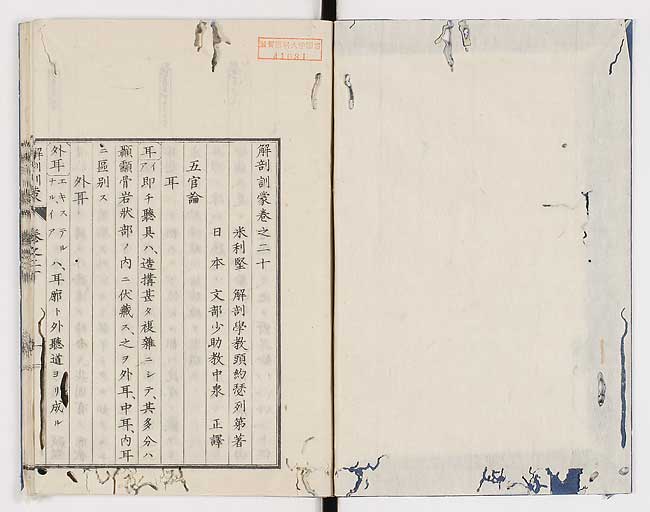 解剖訓蒙卷之二十
米利堅 解剖學教頭約瑟列第著
日本 文部少助教中泉 正譯
五官論
耳
耳イアー即チ聽具ハ、造搆甚タ複雜ニシテ、其多分ハ
顳顬骨岩狀部ノ内ニ伏藏ス、之ヲ外耳、中耳、内耳
ニ區別ス
外耳
外耳エキステルナルイアハ、耳廓ト外聽道ヨリ成ル
解剖訓蒙 卷之二十
41081